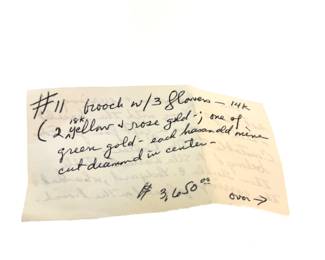 #11 brooch w/3 flowers - 14K
(2 18K yellow & rose gold -; one of
green gold - each has an old mine
cut diamond in center -
# 3,650 00
over →